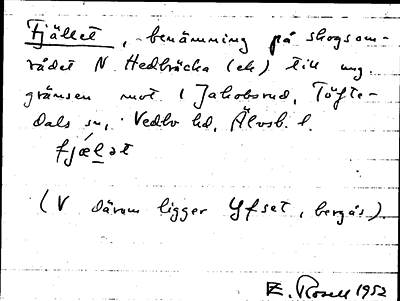 Fjället, benämning på skogsom-
rådet N Hedbräcka (ek) till ung.
gränsen mot 1 Jakobsrud, Töfte-
dals sn, Vedbo hd, Älvsb. l.
fjǽlət
(V därom ligger Yfset, bergås).
E. Rosell 1952